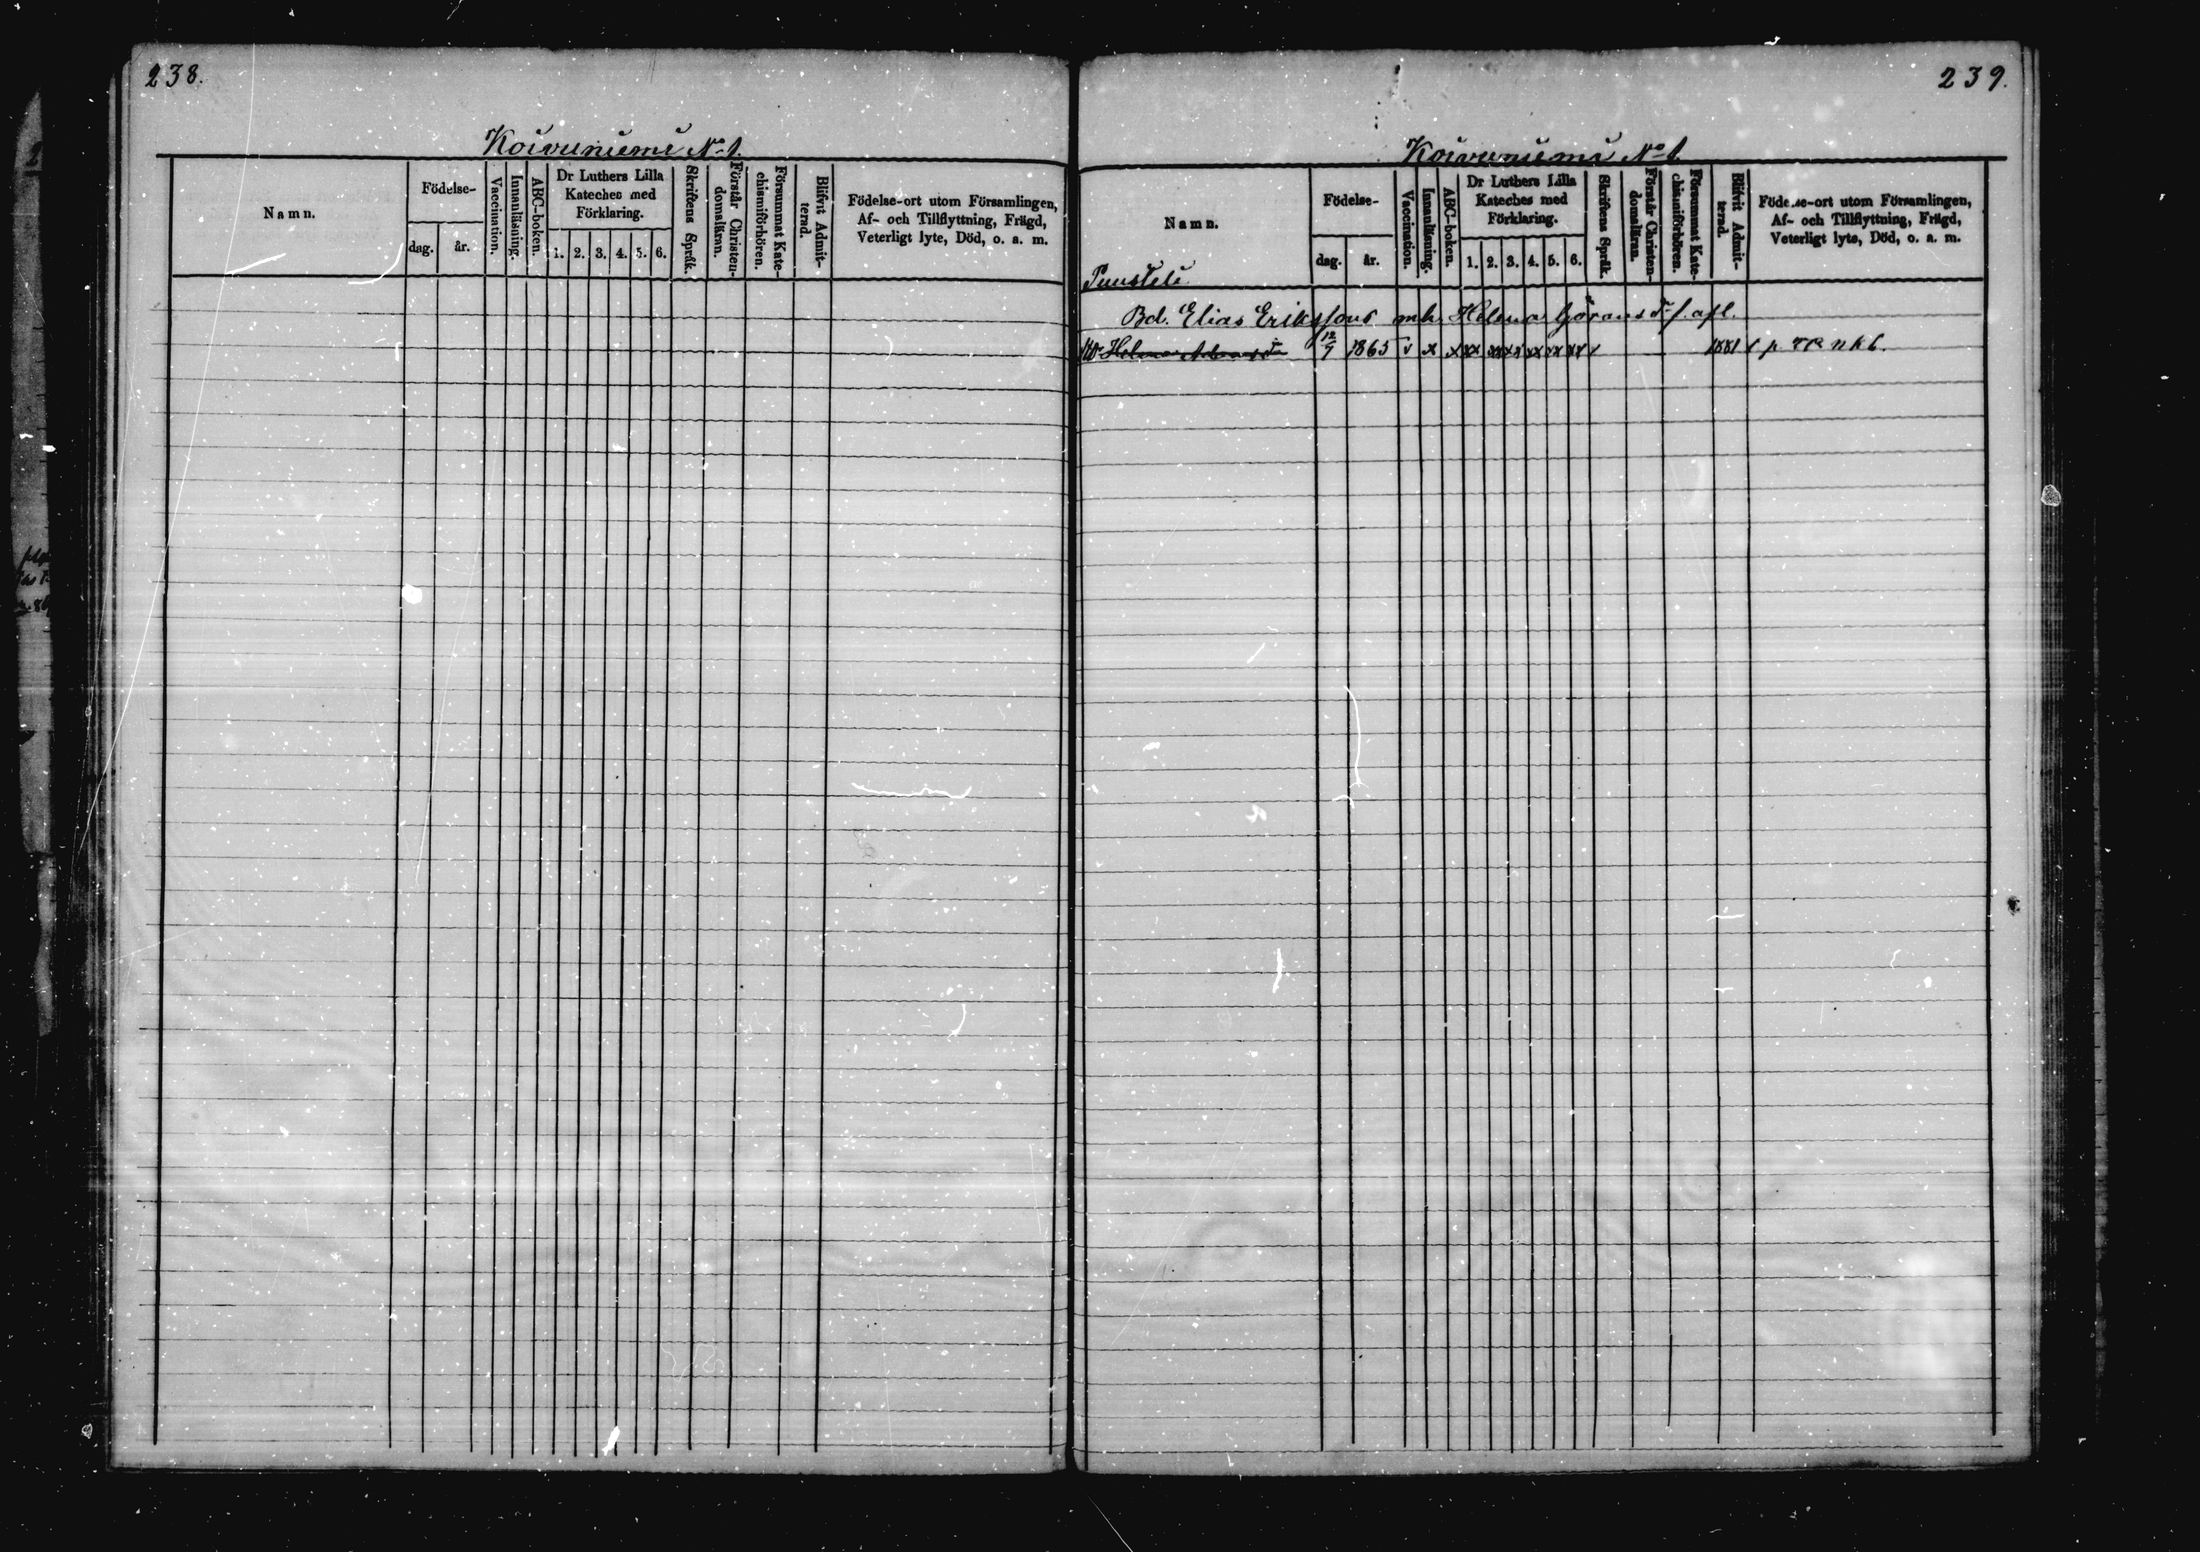 238.
Koivuniemi No 1.
Namn.
Födelse-
dag.
år.
Vaccination.
Innanläsning.
ABC-boken.
Dr Luthers Lilla
Kateches med
Förklaring.
1. 2. 3. 4. 5. 6.
Skriftens Språk.
Förstår Christen-
domsläran.
Försummat Kate-
chismiförhören.
Blifvit Admit-
terad.
Födelse-ort utom Församlingen,
Af- och Tillflyttning, Frägd,
Veterligt lyte, Död, o. a. m.
239.
Koivuniemi No 1
Namn.
Födelse-
dag.
år.
Vaccination.
Innanläsning.
ABC-boken.
Dr Luthers Lilla
Kateches med
Förklaring.
1. 2. 3. 4. 5. 6.
Skriftens Språk.
Förstår Christen-
domsläran.
Försummat Kate-
chismiförhören.
Blifvit Admit-
terad.
Födelse-ort utom Församlingen,
Af- och Tillflyttning, Frägd,
Veterligt lyte, Död, o. a. m.
Puusteli
Bd. Elias Erikssons mh. Helena Görans dr f. afl.
Helena 12/7 1865 v x x xx xx xx xx xx xx 1881